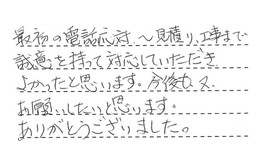 最初の電話応対～見積り、工事まで
誠意を持って対応していただき
よかったと思います。今後も又
お願いしたいと思います。
ありがとうございました。